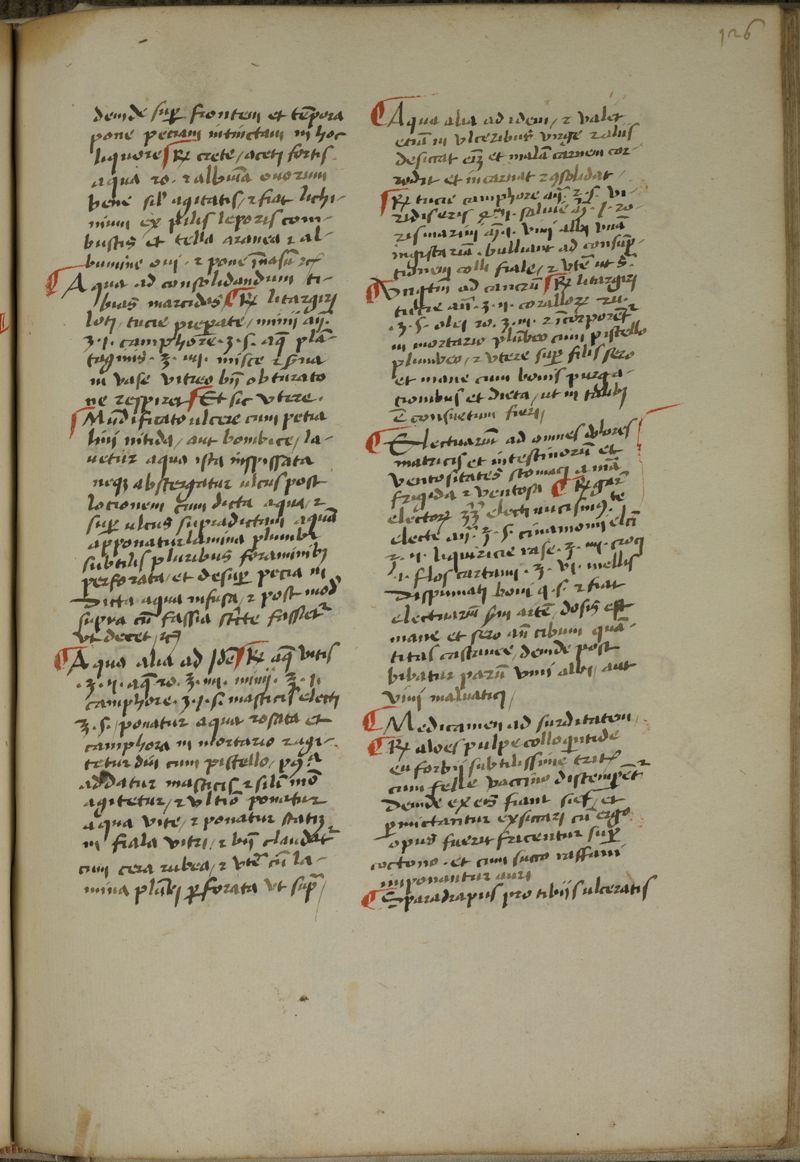 126
deinde sup frontem et tēpora
pone petiam intinctam in hoc
liquore ℞ crete / aceti fortis
aqua ro. ⁊ albuīa ovorum
bene sil' agitatis / ⁊ fiat lichi-
nium ex pilis leporis com-
bustis et tella aranea ⁊ al-
bumine oui . ⁊ pone
Aqua ad consolidandum ti-
bias marcidas ℞ litargirj
loti / tucie preparate / minij añ.
ʒ . j . camphore . ʒ . s . aq̄ plā-
taginis . ʒ . iiij . misce ⁊ s̄rua
in vase vitreo bn̄ obturato
ne respiret Et sic vtere .
Mūdificato ulcere cum petia
lini nitida / aut bombice / la-
vetur aqua ista inspissata
neqȝ abstergatur ulcus post
lotionem cum dicta aqua / ⁊
sup ulcus supradictam aquā
apponatur lamina plumbi
subtilis pluribus foraminibȝ
perforata / et desup petia in
dicta aqua infusa / ⁊ post mod
supra cū fassia stricte fassietr
vt decet /
Aqua alia ad Idē ℞ aq̄ vitis
. ʒ . ij . aq̄ ro . ʒ . iiij . minij . ʒ . j .
camphore . ʒ . j . s . masticis electi
ʒ . s . / ponatur aqua rosata et
camphora in mortario ⁊ agi-
tetur diu cum pistello /
addatur masticis ⁊ sili mō
agitetur / ⁊ vltīo ponatur
aqua vite / ⁊ ponatur statiȝ
in fiala vitri / ⁊ bn̄ claudatr
cum cera rubea / ⁊ vtē cū la-
mina plūbj pforata vt sup /
Aqua alia ad idem / ⁊ valet
etiā in vlceribus virge ⁊ alius
desiccat eīȝ et malā carnem cor-
rodit et incarnat ⁊ ꝯsolidat /
℞ tucie camphore añ . ʒ . s . vi-
ridis eris saluie ro-
rismarini vini albi vnā
ingistariā . bulliant ad consūp-
tionem colli fiale / ⁊ vtē ut s̄ .
Vngtm̄ ad cancrū ℞ litargirj
tucie añ . ʒ . ij . corallorȝ ru .
. ʒ . s . olej ro . ʒ . iij . ⁊ īcorporētr
in mortario plūbeo cum pistello
plumbeo / ⁊ vtere sup filis sero
et mane cum bonis purga-
tionibus et dieta / ut in talibȝ
ē consuetum fieri /
Electuariū ad omnes dolores
matricis et intestinorū et
ventositates stomaci
frigida ⁊ ventosa ℞
electorȝ
electe añ . ʒ . s . cinamomi elcī
ʒ . ij . liquiricie rase . ʒ . iij . crocj
. j . flos cartami . ʒ . vj . mellis
dispumatj boni q . s . ⁊ fiat
electuariū scdm artē / dosis est
mane et sero añ cibum quā-
titas castanee / deinde post
bibatur parū vini albi / aut
vini malvatici /
Medicamen ad surditatem .
℞ aloes pulpe colloquintide
euforbij subtilissime
cum felle vaccino distempēt
deinde ex eis fiant sief / et
pmictantur exsiccari cū ergo
opus fuerit fricentur sup
coctono . et cum succo raffani
imponantur auri
Sparadrapus pro tibijs ulceratis